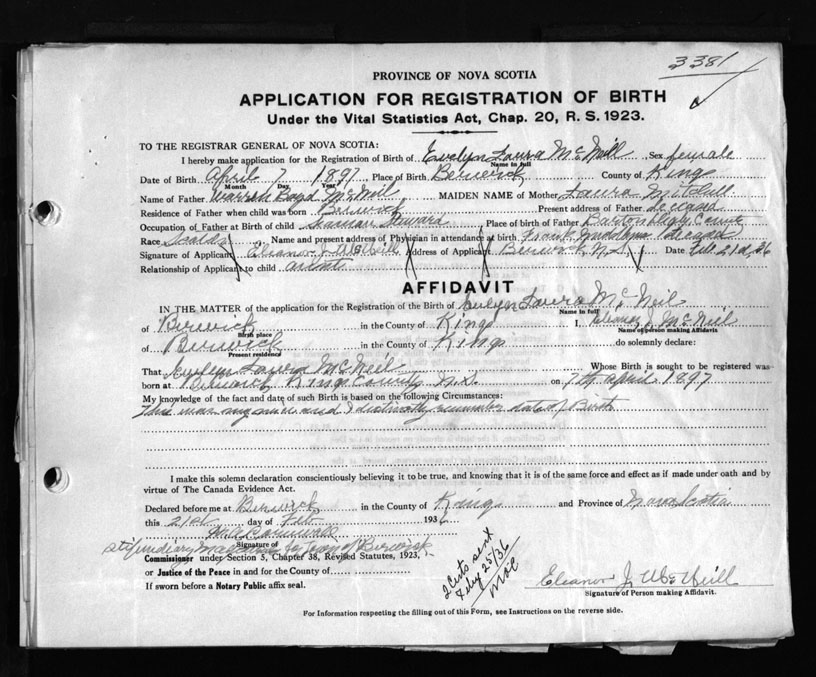 3381
PROVINCE OF NOVA SCOTIA
APPLICATION FOR REGISTRATION OF BIRTH
Under the Vital Statistics Act, Chap. 20, R. S. 1923.
TO THE REGISTRAR GENERAL OF NOVA SCOTIA:
I hereby make application for the Registration of Birth of Evelyn Laura McNeill Sex female
Name in full
Date of Birth April 7 1897 Place of Birth Berwick County of Kings
Month Day Year
Name of Father Warren Boyd McNeil MAIDEN NAME of Mother Laura Mitchell
Residence of Father when child was born Berwick Present address of Father deceased
Occupation of Father at Birth of child Steward Place of birth of Father Barton Digby
Race Scotch Name and present address of Physician in attendance at birth Deceased
Signature of Applicant Eleanor J. McNeill Address of Applicant Berwick, N.S. Date Feb. 21st, 36
Relationship of Applicant to child
AFFIDAVIT
IN THE MATTER of the application for the Registration of the Birth of Evelyn Laura McNeil
Name in full
of Berwick in the County of Kings I, Eleanor J. McNeil
Birth place Name of person making Affidavit
of Berwick in the County of Kings do solemnly declare:
Present residence
That Evelyn Laura McNeil Whose Birth is sought to be registered was
born at Berwick Kings County N.S. on 7th April 1897
My knowledge of the fact and date of such Birth is based on the following Circumstances:
This was my niece and I distinctly remember date of Birth
I make this solemn declaration conscientiously believing it to be true, and knowing that it is of the same force and effect as if made under oath and by
virtue of The Canada Evidence Act.
Declared before me at Berwick in the County of Kings and Province of Nova Scotia
this 21st day of Feb 1936
Signature of
stipendiary Magistrate for Town of Berwick
Commissioner under Section 5, Chapter 38, Revised Statutes, 1923,
or Justice of the Peace in and for the County of
If sworn before a Notary Public affix seal.
2 Certs sent
Feby 25/36
Eleanor J. McNeill
Signature of Person making Affidavit.
For Information respecting the filling out of this Form, see Instructions on the reverse side.